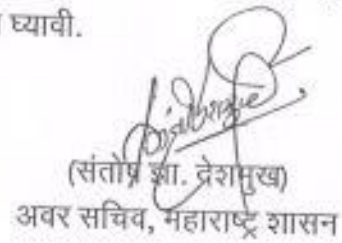 घ्यावी.
(संतोष ज्ञा. देशमुख)
अवर सचिव, महाराष्ट्र शासन